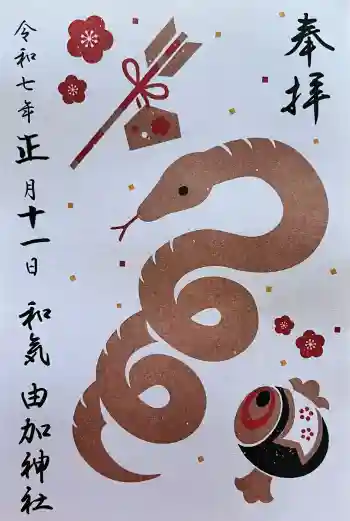 奉拝
令和七年正月十一日 和気由加神社